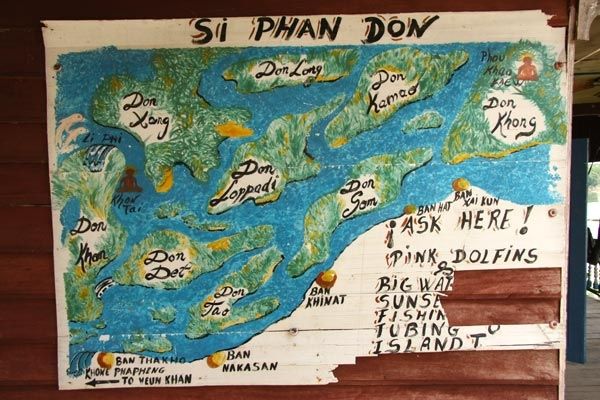 SI PHAN DON
Don Long
Don Xang
Don Kamao
Phou Khao Kaew
Don Khong
Li Phi
Khon Tai
Don Loppadi
Don Som
Don Khon
Don Det
Don Tao
BAN HAT
BAN XAI KUN
¡ASK HERE!
PINK DOLFINS
&
BIG WAT
SUNSE
FISHIN
TUBING TO
ISLAND T
BAN KHINAT
BAN THAKHO
BAN NAKASAN
KHONE PHAPHENG
TO VEUN KHAN